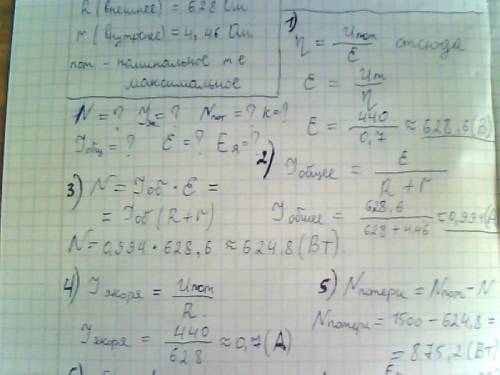 R (внешнее) = 628 Ом
r (внутрене) = 4,46 Ом
пот - номинальное т е
максимальное
N = ? = ? Nпот = ? k = ?
Iобщ = ? ε = ? Eя = ?
1)
η = Uпот / ε отсюда
ε = Uт / η
ε = 440 / 0,7 ≈ 628,6 (В)
2) Iобщее = ε / R + r
Iобщее = 628,6 / 628 + 4.46 ≈ 0,994 (
3) N = Iоб · ε =
= Iоб (R + r)
N = 0,994 · 628,6 ≈ 624,8 (Вт).
4) Iякоря = Uпот / R.
Iякоря = 440 / 628 ≈ 0,7 (А)
5) Nпотери = Nпот - N
Nпотери = 1500 - 624,8 =
= 875,2 (Вт)